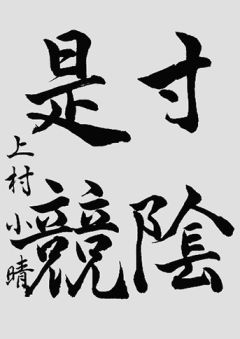 寸陰
是競
上村小晴